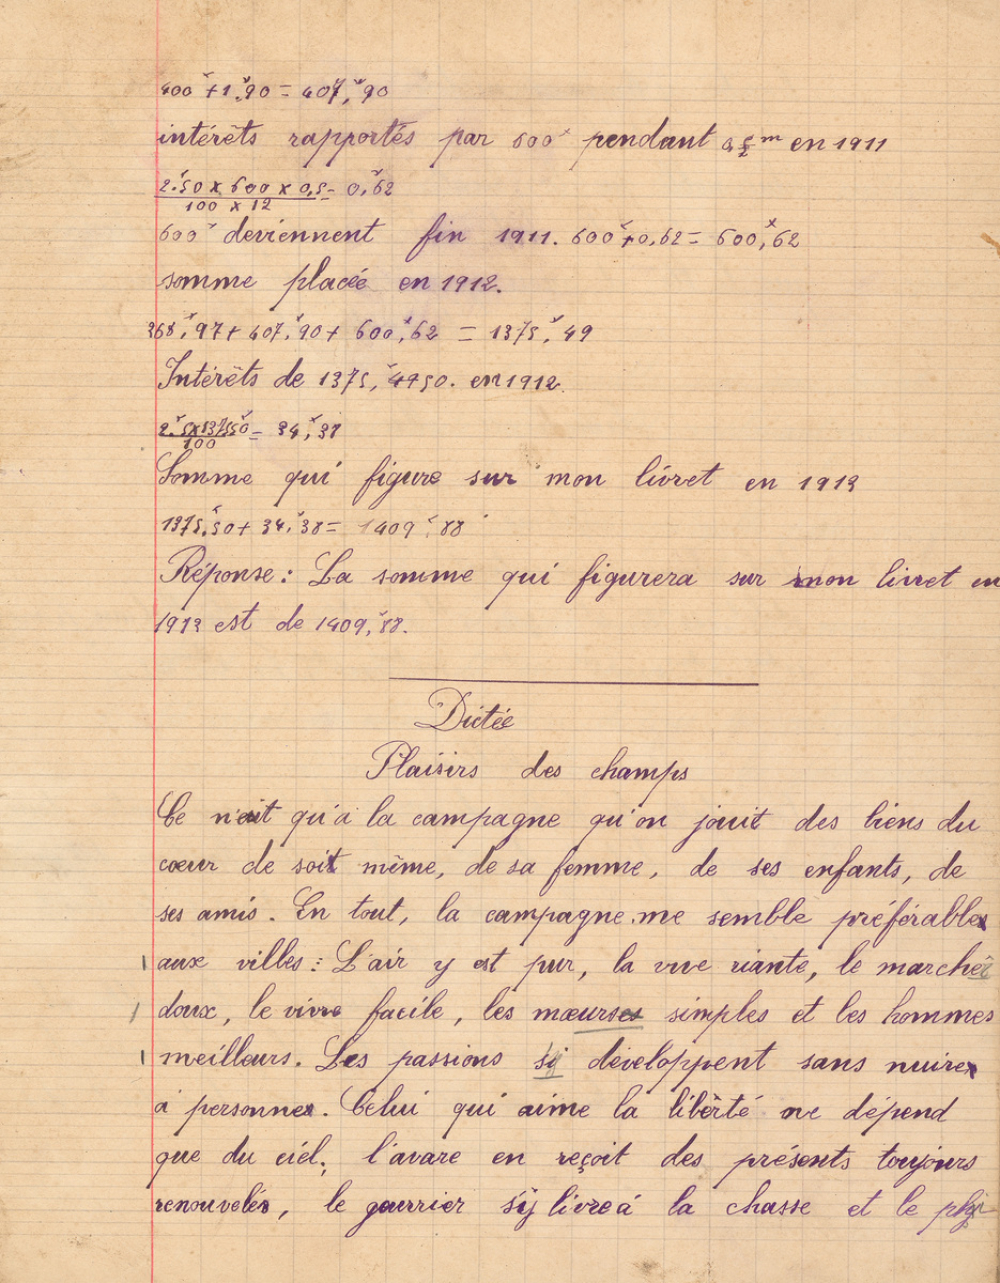 400ᶠ + 1,ᶠ90 = 407,ᶠ90
intérêts rapportés par 600ᶠ pendant 0,5 ᵐ en 1911
2.ᶠ50 x 600 x 0,5 = 0,ᶠ62
100 x 12
600ᶠ deviennent fin 1911. 600ᶠ + 0,62 = 600,ᶠ62
somme placée en 1912.
368,ᶠ97 + 407,ᶠ90 + 600,ᶠ62 = 1375,ᶠ49
Intérêts de 1375,ᶠ4950. en 1912
2.ᶠ5 x 1375,50 = 34,ᶠ38
100
Somme qui figure sur mon livret en 1913
1375,ᶠ50 + 34,ᶠ38 = 1409,ᶠ88
Réponse : La somme qui figurera sur mon livret en
1913 est de 1409,ᶠ88.
Dictée
Plaisirs des champs
Ce n'est qu'à la campagne qu'on jouit des biens du
cœur de soi même, de sa femme, de ses enfants, de
ses amis. En tout, la campagne me semble préférable
aux villes : L'air y est pur, la vue riante, le marcher
doux, le vivre facile, les mœurs simples et les hommes
meilleurs. Les passions s'y développent sans nuire
à personne. Celui qui aime la libèrté ne dépend
que du ciel; l'avare en reçoit des présents toujours
renouvelés, le guerrier s'y livre à la chasse et le